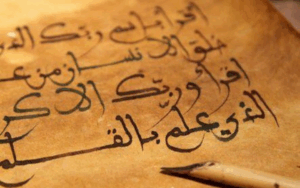 اقرأ باسم ربك الذي
خلق الانسان من
اقرأ وربك الاكر
الذي علم بالقلم